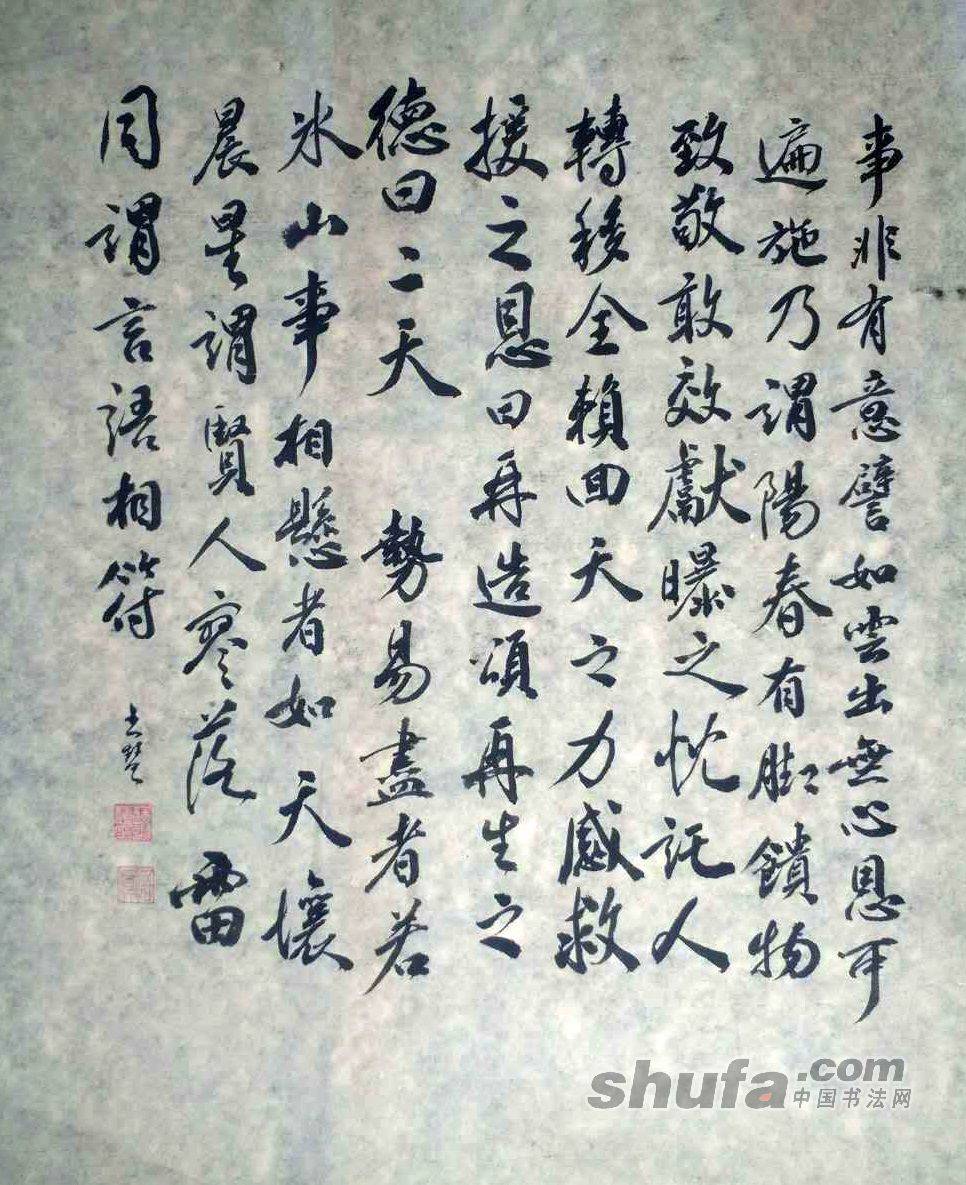 事非有意譬如雲出無心恩可
遍施乃謂陽春有腳饋物
致敬敢效獻曝之忱託人
轉移全賴回天之力感救
援之恩曰再造頌再生之
德曰二天 勢易盡者若
冰山事相懸者如天壤
晨星謂賢人寥落雷
同謂言語相符
shufa.com
中国书法网